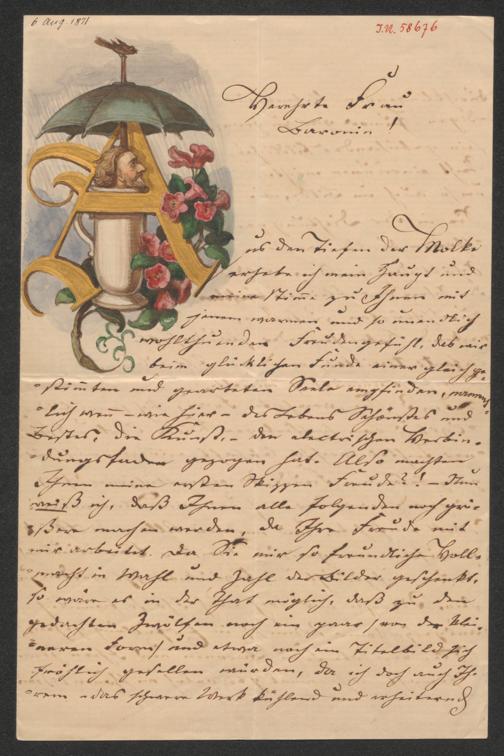 6 Aug. 1871
I.N. 58676
Verehrte Frau
Baronin!
A
us den Tiefen der Molke
erhebe ich mein Haupt und
meine Stime zu Ihnen mit
jenem warmen und so unendlich
wohlthuenden Freudengefühl, das wir
beim glücklichen Funde einer gleichge-
stimmten und gearteten Seele empfinden, nament-
lich wenn – wie hier – des Lebens Schönstes und
Bestes, die Kunst, – den electrischen Verbin-
dungsfaden gezogen hat. Also machten
Ihnen meine ersten Skizzen Freude?! – Nun
weiß ich, daß Ihnen alle folgenden noch grö-
ßere machen werden, da Ihre Freude mit
mir arbeitet. Da Sie mir so freundliche Voll-
macht in Wahl und Zahl der Bilder geschenkt,
so wäre es in der That möglich, daß zu den
gedachten Zwölfen noch ein paar (von der klei-
neren Form) und etwa noch ein Titelbild sich
fröhlich gesellen würden, da ich doch auch Ih-
rem das schwere Werk kühlend und erheiternd